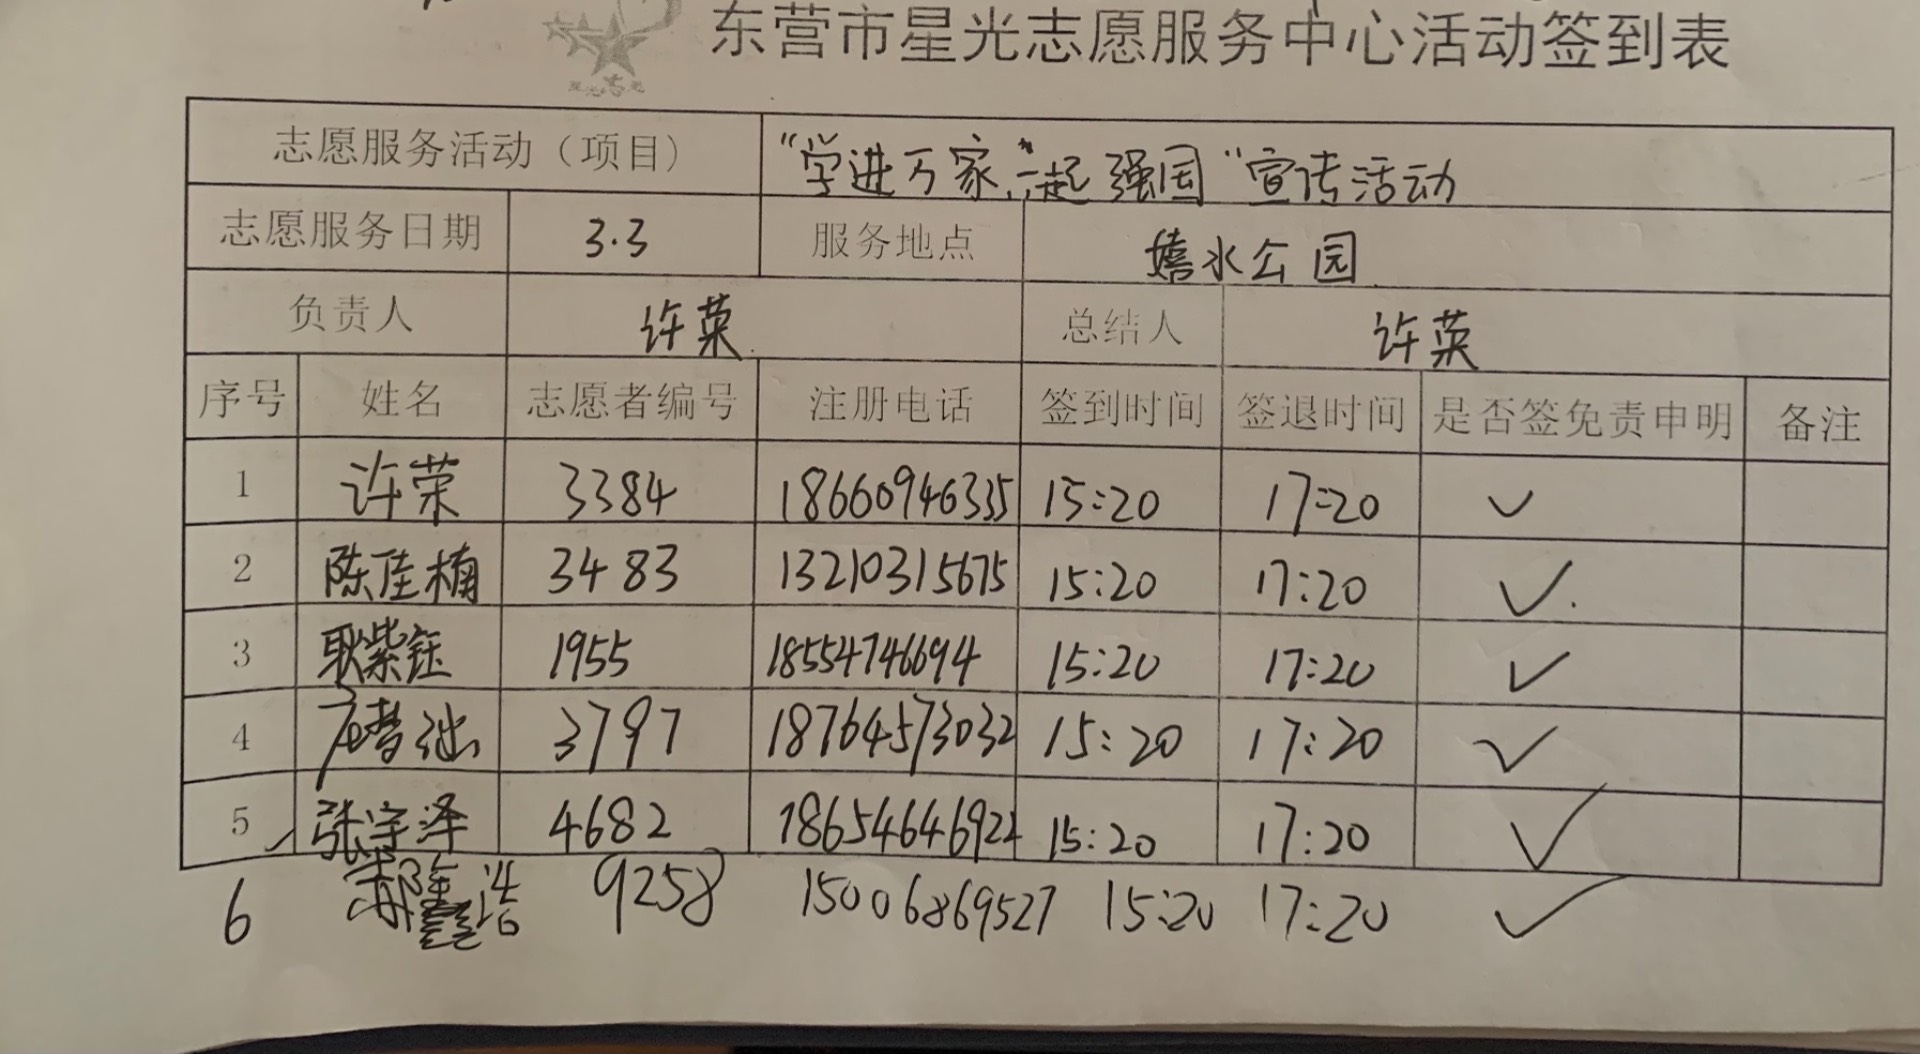 东营市星光志愿服务中心活动签到表
志愿服务活动（项目） “学进万家，一起强国”宣传活动
志愿服务日期 3.3 服务地点 嬉水公园
负责人 许荣 总结人 许荣
序号 姓名 志愿者编号 注册电话 签到时间 签退时间 是否签免责申明 备注
1 许荣 3384 18660946335 15:20 17:20 ✓
2 陈佳楠 3483 13210315675 15:20 17:20 ✓
3 耿紫钰 1955 18554746694 15:20 17:20 ✓
4 3797 18764573032 15:20 17:20 ✓
5 张宇泽 4682 18654646922 15:20 17:20 ✓
6 9258 15006869527 15:20 17:20 ✓